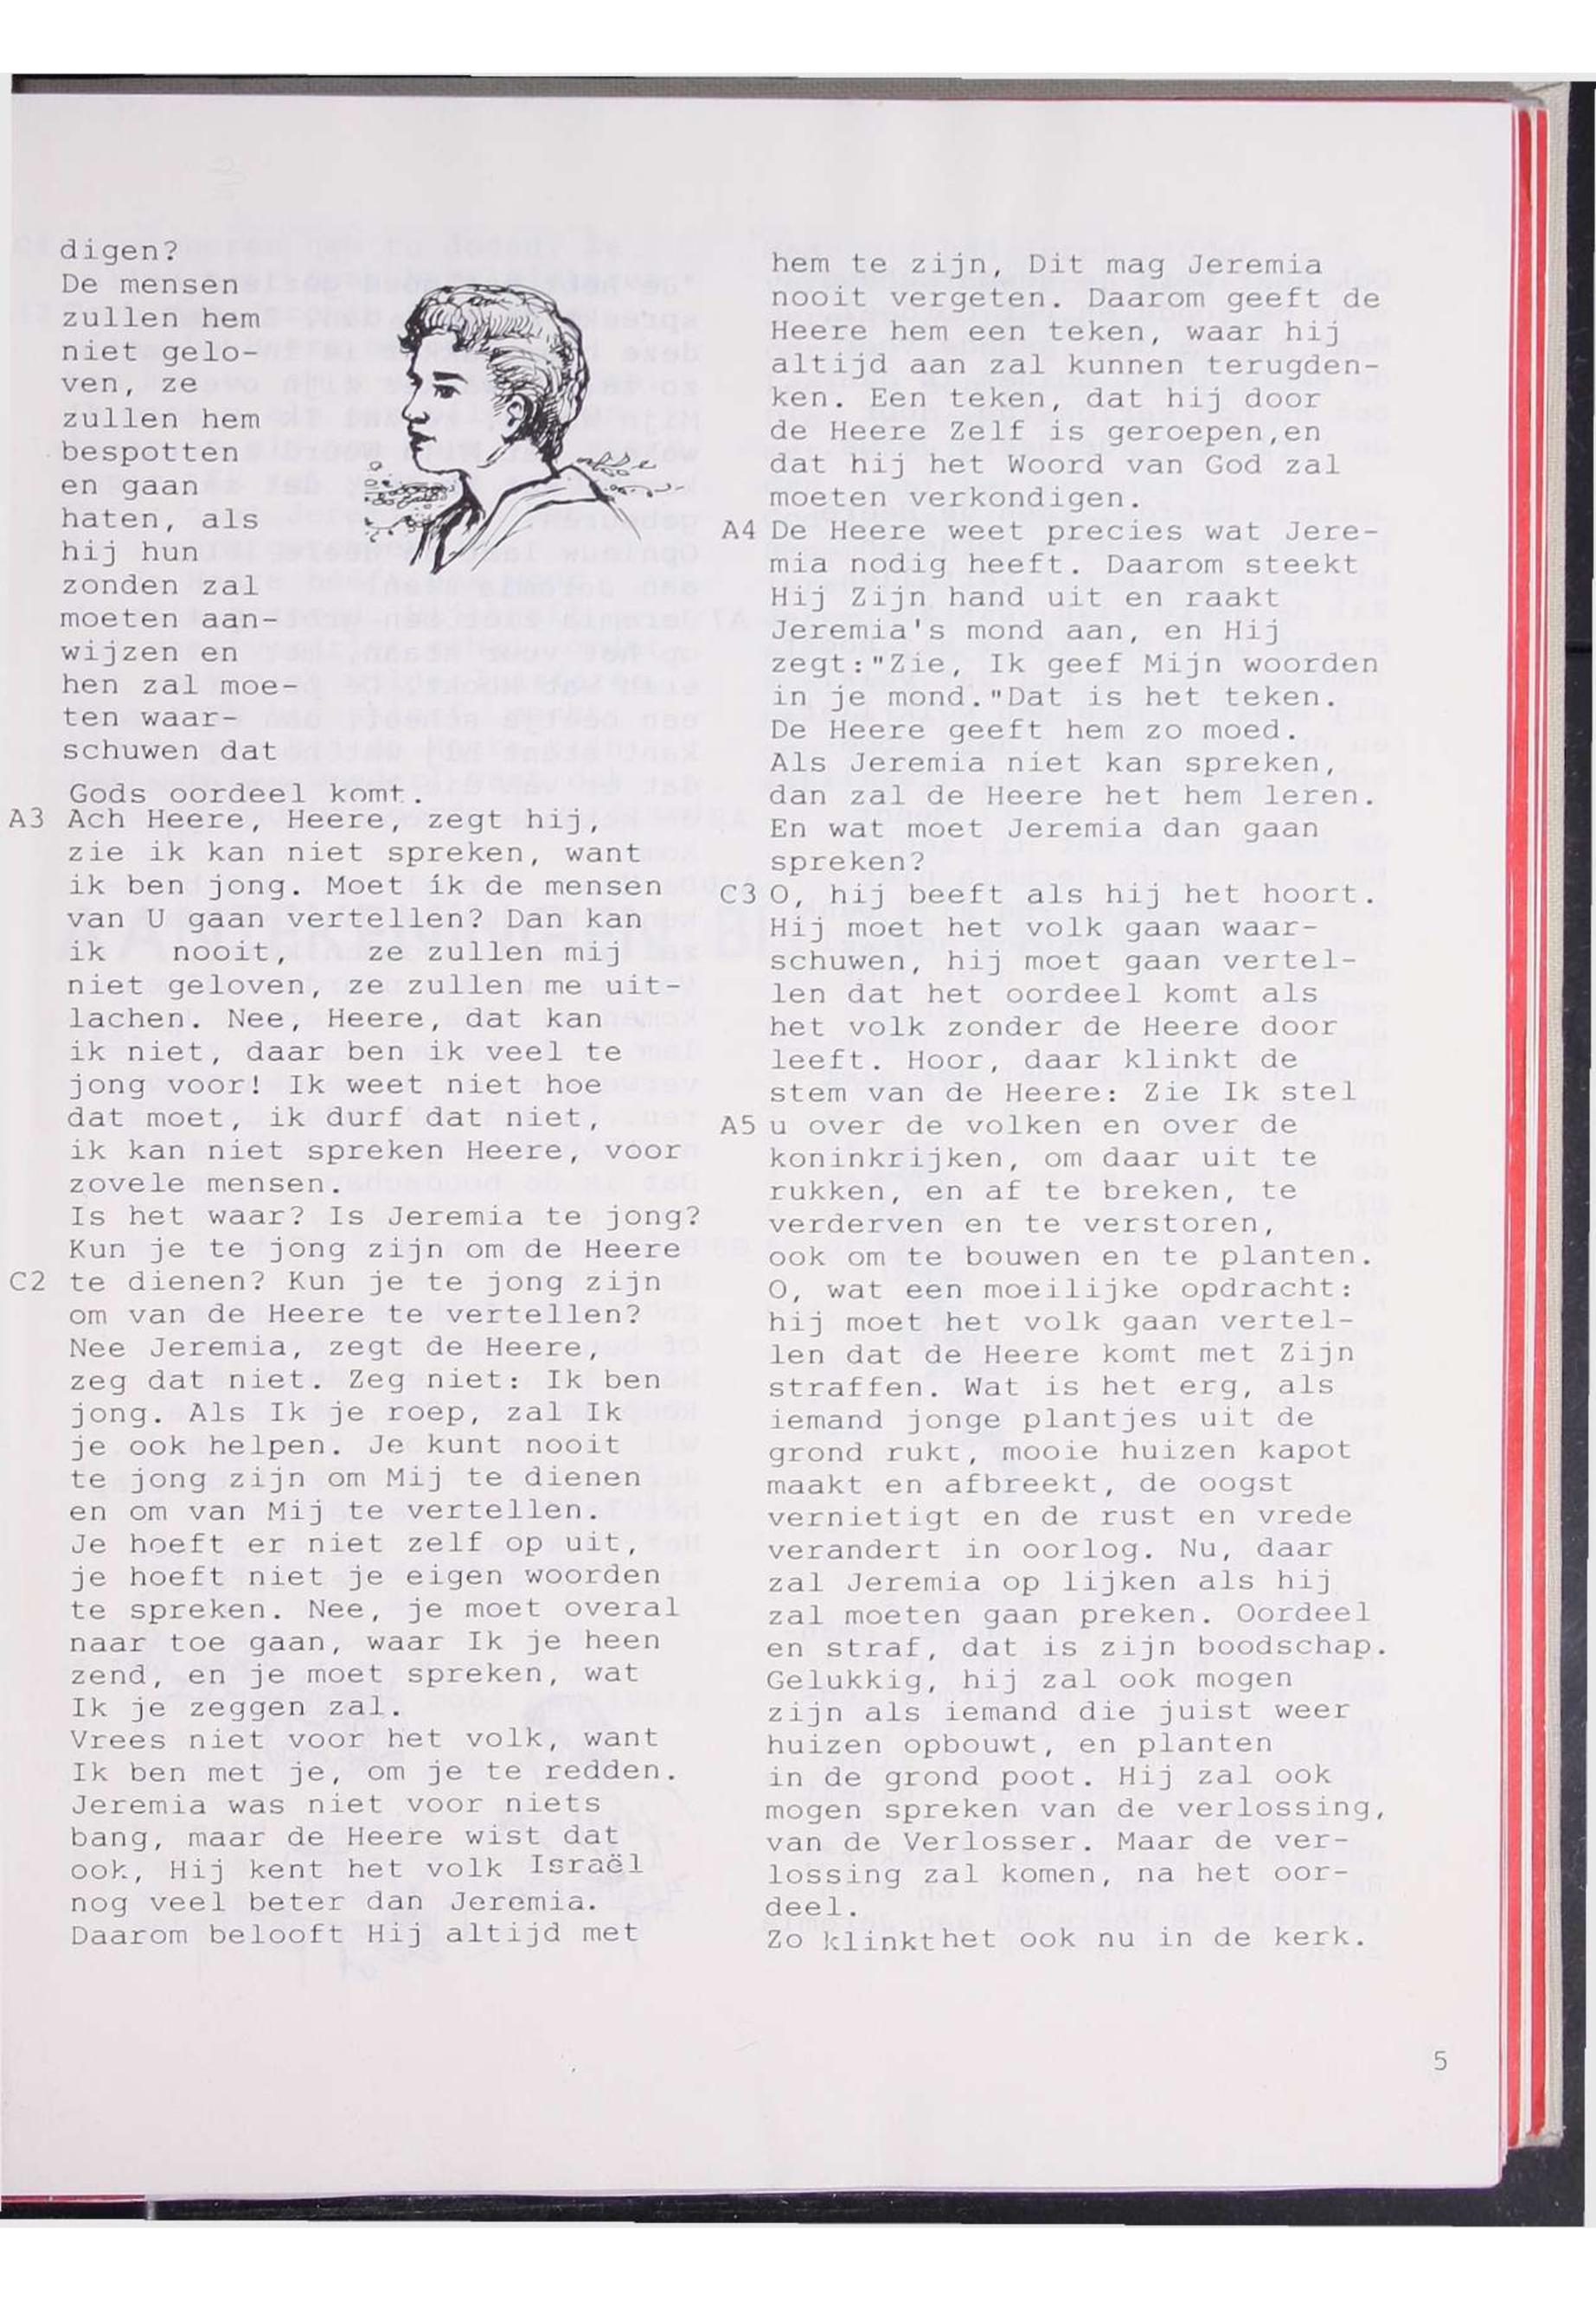 digen?
De mensen
zullen hem
niet gelo-
ven, ze
zullen hem
bespotten
en gaan
haten, als
hij hun
zonden zal
moeten aan-
wijzen en
hen zal moe-
ten waar-
schuwen dat
Gods oordeel komt.
A3 Ach Heere, Heere, zegt hij,
zie ik kan niet spreken, want
ik ben jong. Moet ík de mensen
van U gaan vertellen? Dan kan
ik nooit, ze zullen mij
niet geloven, ze zullen me uit-
lachen. Nee, Heere, dat kan
ik niet, daar ben ik veel te
jong voor! Ik weet niet hoe
dat moet, ik durf dat niet,
ik kan niet spreken Heere, voor
zovele mensen.
Is het waar? Is Jeremia te jong?
Kun je te jong zijn om de Heere
C2 te dienen? Kun je te jong zijn
om van de Heere te vertellen?
Nee Jeremia, zegt de Heere,
zeg dat niet. Zeg niet: Ik ben
jong. Als Ik je roep, zal Ik
je ook helpen. Je kunt nooit
te jong zijn om Mij te dienen
en om van Mij te vertellen.
Je hoeft er niet zelf op uit,
je hoeft niet je eigen woorden
te spreken. Nee, je moet overal
naar toe gaan, waar Ik je heen
zend, en je moet spreken, wat
Ik je zeggen zal.
Vrees niet voor het volk, want
Ik ben met je, om je te redden.
Jeremia was niet voor niets
bang, maar de Heere wist dat
ook, Hij kent het volk Israël
nog veel beter dan Jeremia.
Daarom belooft Hij altijd met
hem te zijn, Dit mag Jeremia
nooit vergeten. Daarom geeft de
Heere hem een teken, waar hij
altijd aan zal kunnen terugden-
ken. Een teken, dat hij door
de Heere Zelf is geroepen,en
dat hij het Woord van God zal
moeten verkondigen.
A4 De Heere weet precies wat Jere-
mia nodig heeft. Daarom steekt
Hij Zijn hand uit en raakt
Jeremia's mond aan, en Hij
zegt:"Zie, Ik geef Mijn woorden
in je mond."Dat is het teken.
De Heere geeft hem zo moed.
Als Jeremia niet kan spreken,
dan zal de Heere het hem leren.
En wat moet Jeremia dan gaan
spreken?
C3 O, hij beeft als hij het hoort.
Hij moet het volk gaan waar-
schuwen, hij moet gaan vertel-
len dat het oordeel komt als
het volk zonder de Heere door
leeft. Hoor, daar klinkt de
stem van de Heere: Zie Ik stel
A5 u over de volken en over de
koninkrijken, om daar uit te
rukken, en af te breken, te
verderven en te verstoren,
ook om te bouwen en te planten.
O, wat een moeilijke opdracht:
hij moet het volk gaan vertel-
len dat de Heere komt met Zijn
straffen. Wat is het erg, als
iemand jonge plantjes uit de
grond rukt, mooie huizen kapot
maakt en afbreekt, de oogst
vernietigt en de rust en vrede
verandert in oorlog. Nu, daar
zal Jeremia op lijken als hij
zal moeten gaan preken. Oordeel
en straf, dat is zijn boodschap.
Gelukkig, hij zal ook mogen
zijn als iemand die juist weer
huizen opbouwt, en planten
in de grond poot. Hij zal ook
mogen spreken van de verlossing,
van de Verlosser. Maar de ver-
lossing zal komen, na het oor-
deel.
Zo klinkt het ook nu in de kerk.
5